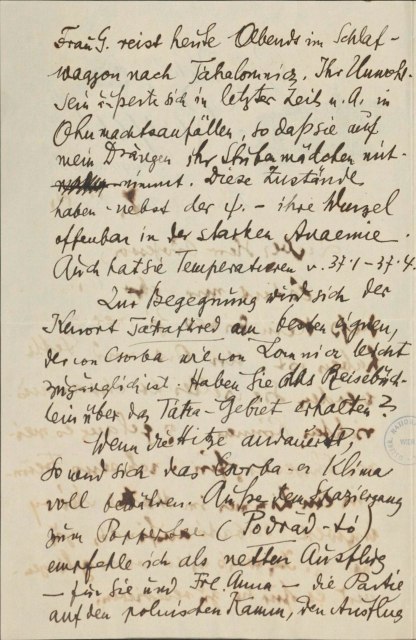 Frau G. reist heute Abends im Schlaf-
waggon nach Tátralomnicz. Ihr Unwohl-
sein äußerte sich in letzter Zeit u. A. in
Ohnmachtsanfällen, so daß sie auf
mein Drängen ihr Stubenmädchen mit-
nimmt. Diese Zustände
haben - nebst der ψ. - ihre Wurzel
offenbar in der starken Anaemie.
Auch hat sie Temperaturen v. 37·1 - 37·4.
Zur Begegnung wird sich der
Kurort Tátrafüred am besten eignen,
der von Csorba wie von Lomnicz leicht
zugänglich ist. Haben Sie das Reisebüch-
lein über das Tátra-Gebiet erhalten?
Wenn die Hitze andauert,
so wird sich das Csorba-er Klima
voll bewähren. Außer dem Spaziergang
zum Poppersee (Podrad-tó)
empfehle ich als netten Ausflug
- für Sie und Frl Anna - die Partie
auf den polnischen Kamm, den Ausflug